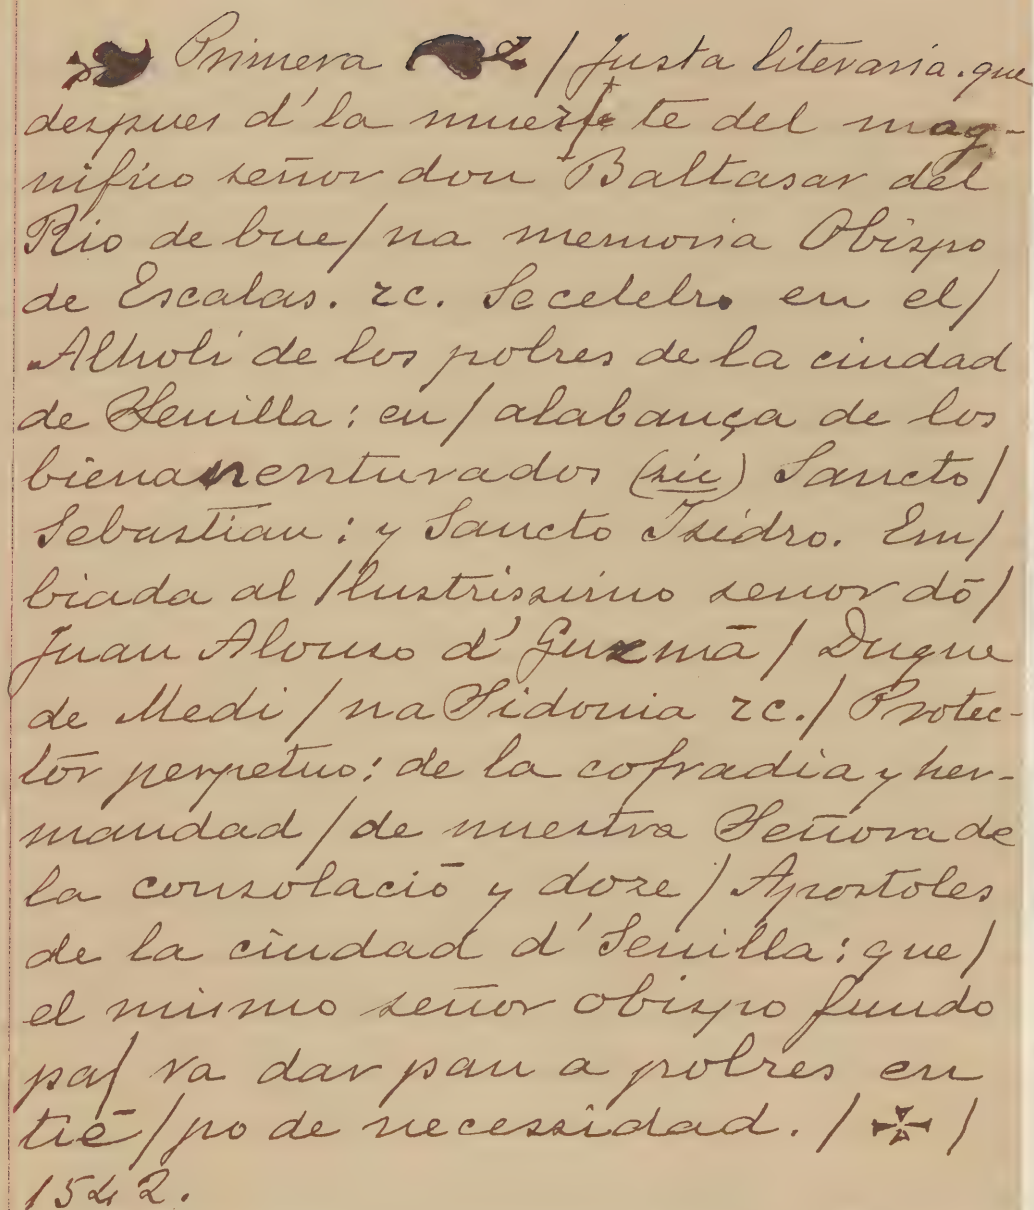 Primera / Justa literaria. que
despues d' la muer/te del mag-
nifico señor don Baltasar del
Rio de bue/na memoria Obispo
de Escalas. ɀc. Se celebro en el/
Alholi de los pobres de la ciudad
de Seuilla: en/ alabança de los
bienauenturados (sic) Sancto/
Sebastian: y Sancto Isidro. Em/
biada al Ilustrissimo senor dō/
Juan Alonso d' Guzmā / Duque
de Medi / na Sidonia ɀc./ Protec-
tor perpetuo: de la cofradia y her-
mandad / de nuestra Señora de
la consolaciō y doze / Apostoles
de la ciudad d' Seuilla: que/
el mismo señor obispo fundo
pa/ ra dar pan a pobres en
tiē/po de necessidad. / ✠ /
1542.